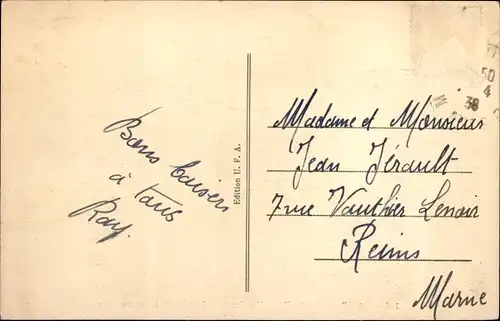 Bons baisers
à tous
Ray.
Edition U. F. A.
Madame et Monsieur
Jean Jérault
7 rue Vauthier Lenoir
Reims
Marne
30
4
38